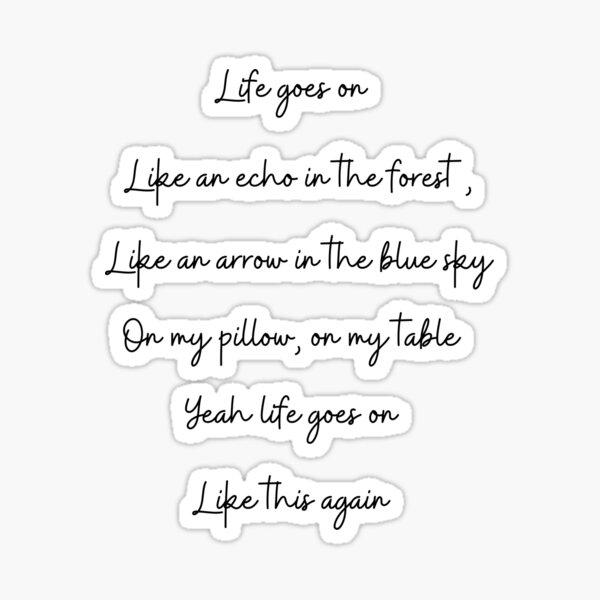 Life goes on
Like an echo in the forest ,
Like an arrow in the blue sky
On my pillow, on my table
Yeah life goes on
Like this again